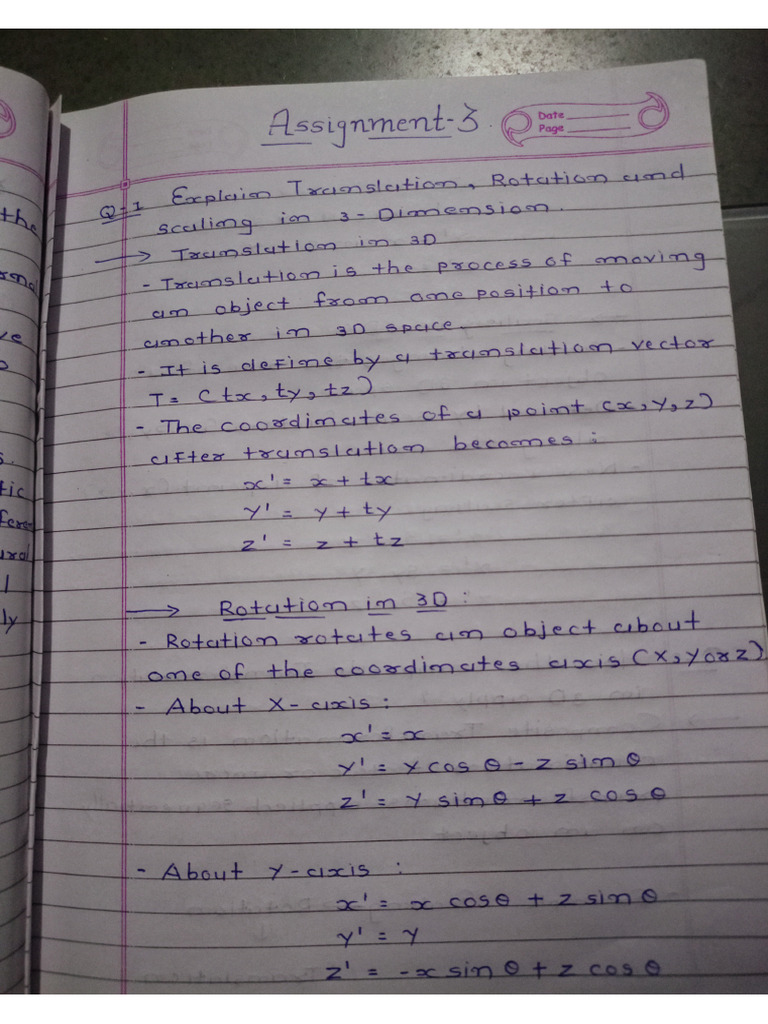 Assignment-3.
Date
Page
Q-1 Explain Translation, Rotation and
scaling in 3-Dimension.
→ Translation in 3D
- Translation is the process of moving
an object from one position to
another in 3D space.
- It is define by a translation vector
T= (tx, ty, tz)
- The coordinates of a point (x, y, z)
after translation becomes:
x' = x + tx
y' = y + ty
z' = z + tz
→ Rotation in 3D :
- Rotation rotates an object about
one of the coordinates axis (x, y or z)
- About X-axis:
x' = x
y' = y cos θ - z sin θ
z' = y sinθ + z cos θ
- About y-axis :
x' = x cosθ + z sin θ
y' = y
z' = -x sin θ + z cos θ
the
ve
s.
tic
ural
l
ly